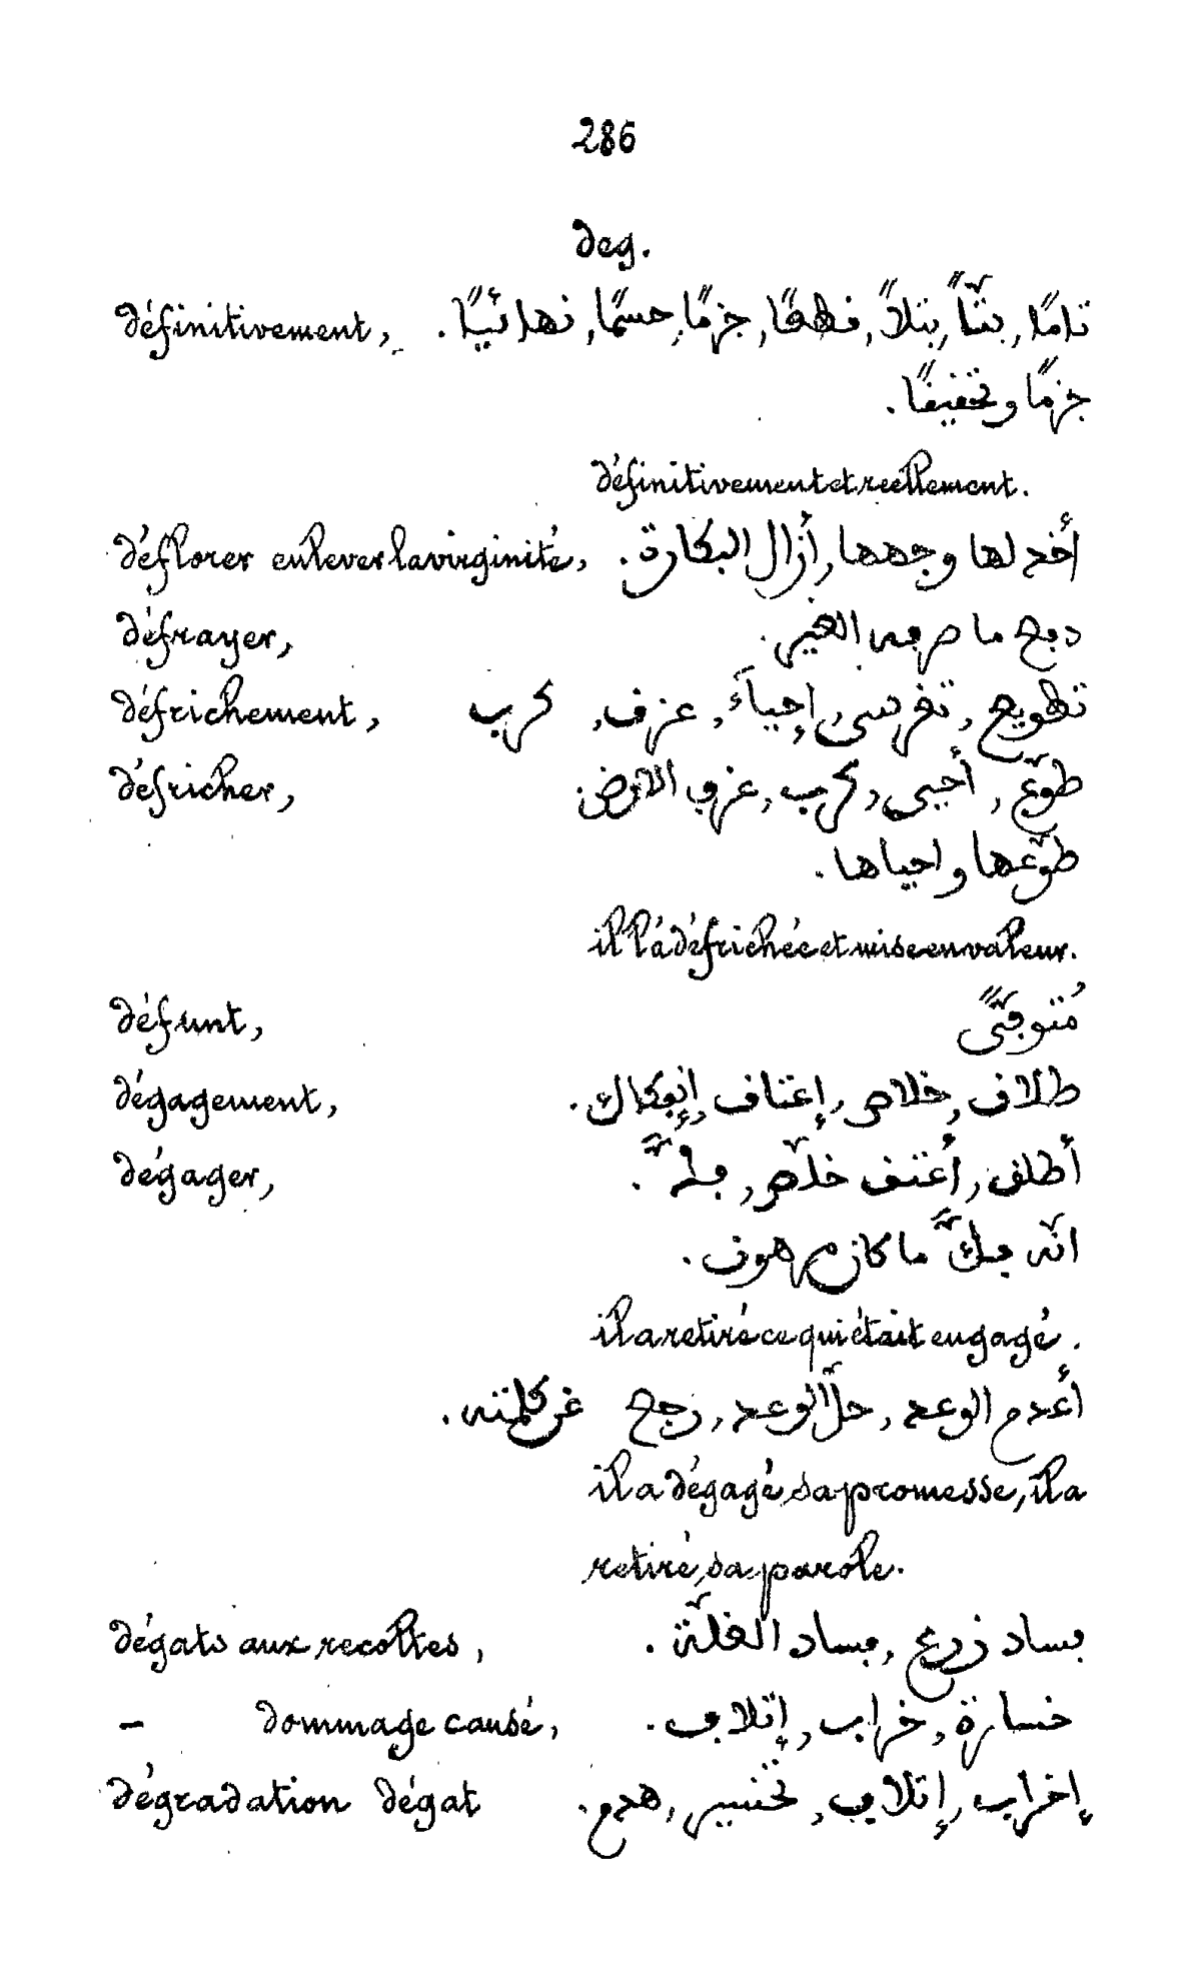 286
deg.
définitivement, تامًا, بتّاً, بتلاً, فطعًا, جزمًا, حسمًا, نهائيًا.
جزمًا وتحفيفًا.
définitivement et reellement.
déflorer enlever la virginité, أخد لها وجهها, أزال البكارة.
défrayer, دبع ما صرفه الغير.
défrichement, تطويع, تغرس, إحياء, عزف,
défricher, طوّع, أحيى, عزف الارض.
طوّعها واحياها.
il l'a défrichée et mise en valeur.
défunt, مُتوفّىً
dégagement, طلاف, خلاص, إعتاف, إنفكاك.
dégager, أطلف, أعتف خلّص,
انّه فكّ ما كان مرهون.
il a retiré ce qui était engagé.
أعدم الوعد, حلّ الوعد, رجع عن كلمته.
il a dégagé sa promesse, il a
retiré sa parole.
dégats aux recoltes, فساد زرع, فساد الغلّة.
– dommage causé, خسارة, خراب, إتلاف.
dégradation dégat إخراب, إتلاف, تخسير, هدم.